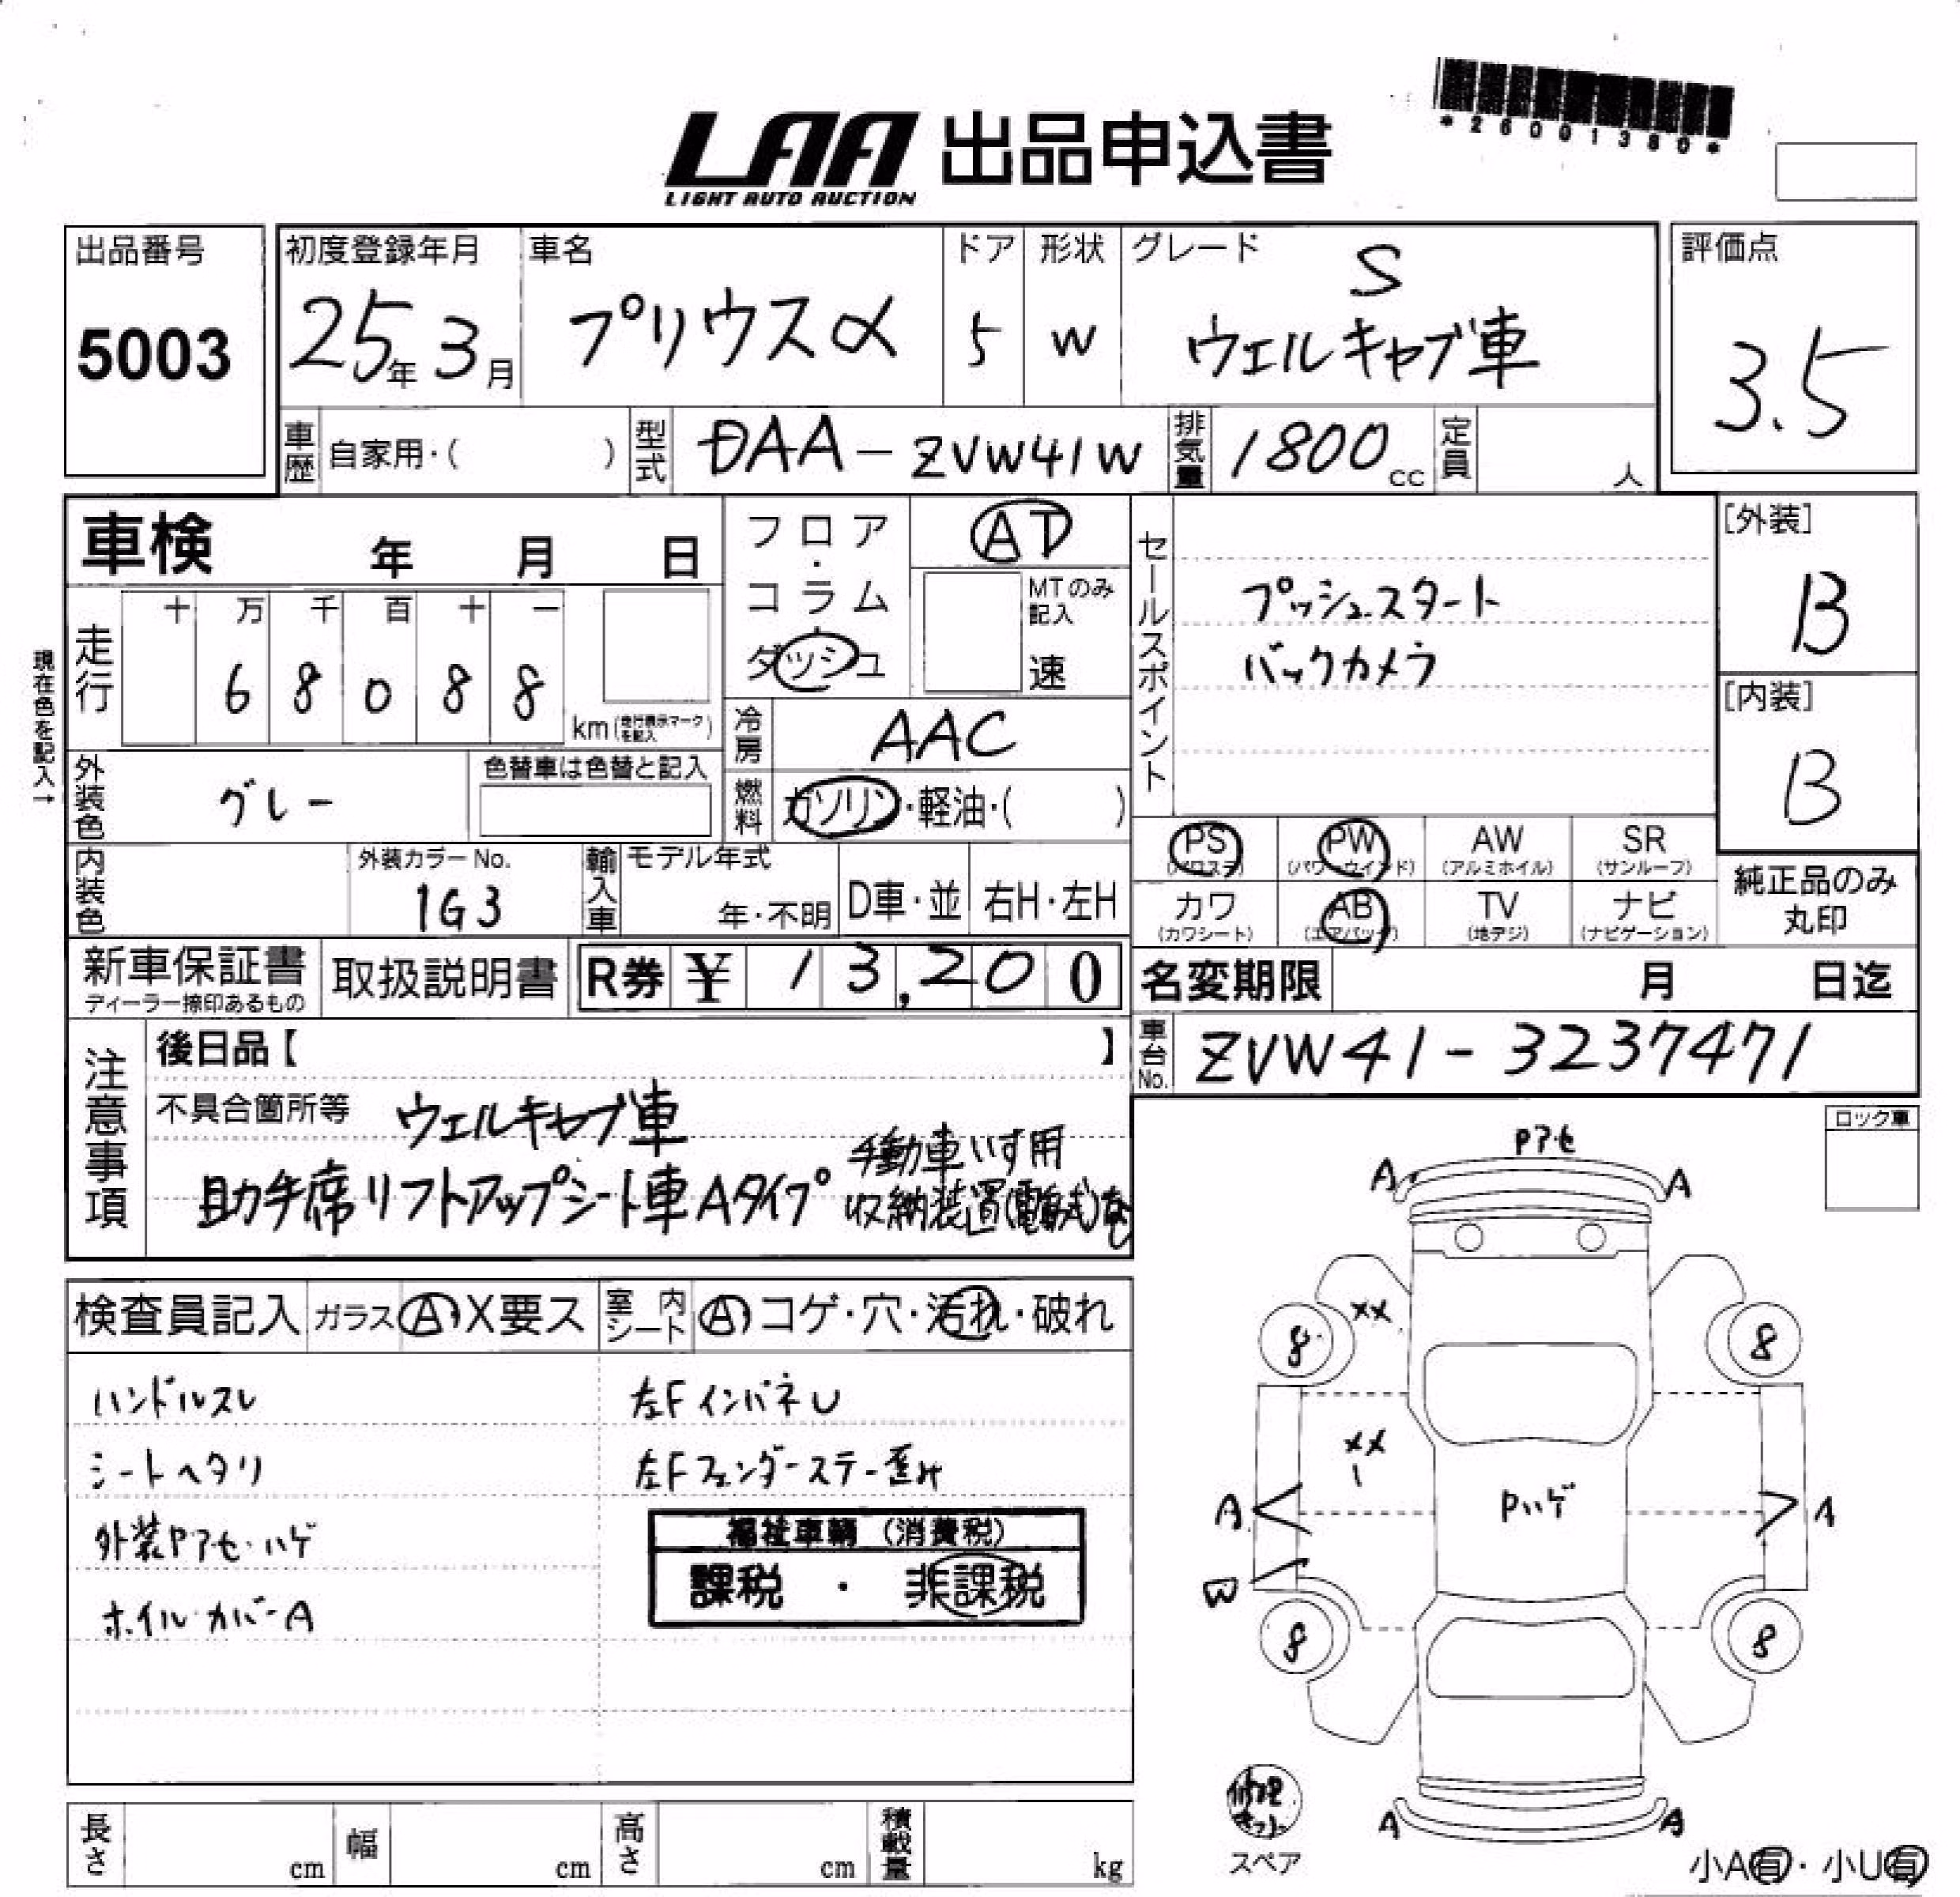 *26001380*
LAA 出品申込書
LIGHT AUTO AUCTION
出品番号
5003
初度登録年月
25年 3月
車名
プリウスα
ドア
5
形状
W
グレード
S
ウェルキャブ車
評価点
3.5
車歴 自家用・( )
型式 DAA-ZVW41W
排気量 1800 cc
定員 人
車検 年 月 日
走行
十 万 千 百 十 一
6 8 0 8 8
km(走行表示マークを記入)
現在色を記入→
フロア・コラム・ダッシュ
AT
MTのみ記入
速
冷房 AAC
燃料 ガソリン・軽油・( )
セールスポイント
プッシュスタート
バックカメラ
[外装]
B
[内装]
B
外装色 グレー
色替車は色替と記入
内装色
外装カラーNo.
1G3
輸入車
モデル年式
年・不明
D車・並
右H・左H
PS PW AW SR
(パワステ) (パワーウインド) (アルミホイル) (サンルーフ)
カワ AB TV ナビ
(カワシート) (エアバッグ) (地デジ) (ナビゲーション)
純正品のみ
丸印
新車保証書
ディーラー捺印あるもの
取扱説明書
R券 ¥ 13,200
名変期限 月 日迄
車台No. ZVW41-3237471
注意事項
後日品【 】
不具合箇所等 ウェルキャブ車
助手席リフトアップシート車Aタイプ
手動車いす用
収納装置(電動式)
ロック車
検査員記入 ガラス A・X要ス 室内シート A・コゲ・穴・汚れ・破れ
ハンドルスレ
シートヘタリ
外装Pアセ・ハゲ
ホイルカバーA
左FインパネU
左Fフェンダーステー歪み
福祉車輌(消費税)
課税 ・ 非課税
Pアセ
A A
XX
8 8
XX
Pハゲ
A A
W
8 8
A A
修理キット
スペア
小A有・小U有
長さ cm 幅 cm 高さ cm 積載量 kg